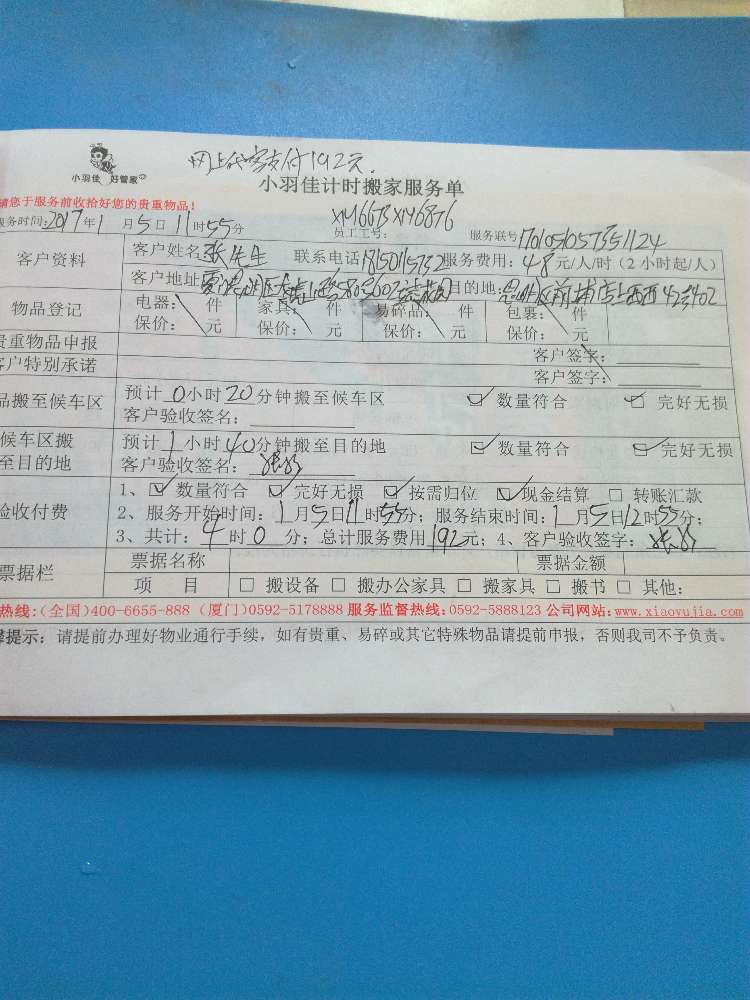 网上代客支付192元.
小羽佳 好管家
小羽佳计时搬家服务单
请您于服务前收拾好您的贵重物品!
服务时间:2017年1月5日11时55分 员工工号: XM6673 XM6876 服务联号
客户资料 客户姓名 张先生 联系电话 服务费用: 48元/人/时 (2小时起/人)
客户地址 目的地:
物品登记 电器: 件 家具: 件 易碎品: 件 包裹: 件
保价: 元 保价: 元 保价: 元 保价: 元
贵重物品申报 客户签字:
客户特别承诺 客户签字:
品搬至候车区 预计 0小时20分钟搬至候车区 ☑ 数量符合 ☑ 完好无损
客户验收签名:
候车区搬 预计 1小时40分钟搬至目的地 ☑ 数量符合 ☑ 完好无损
至目的地 客户验收签名:
验收付费 1、☑ 数量符合 ☑ 完好无损 ☑ 按需归位 ☑ 现金结算 □ 转账汇款
2、服务开始时间: 1月5日11时55分; 服务结束时间: 1月5日12时55分;
3、共计: 4时0分; 总计服务费用192元; 4、客户验收签字:
票据栏 票据名称 票据金额
项 目 □ 搬设备 □ 搬办公家具 □ 搬家具 □ 搬书 □ 其他:
热线:(全国)400-6655-888 (厦门)0592-5178888 服务监督热线:0592-5888123 公司网站:www.xiaoyujia.com
提示: 请提前办理好物业通行手续，如有贵重、易碎或其它特殊物品请提前申报，否则我司不予负责。